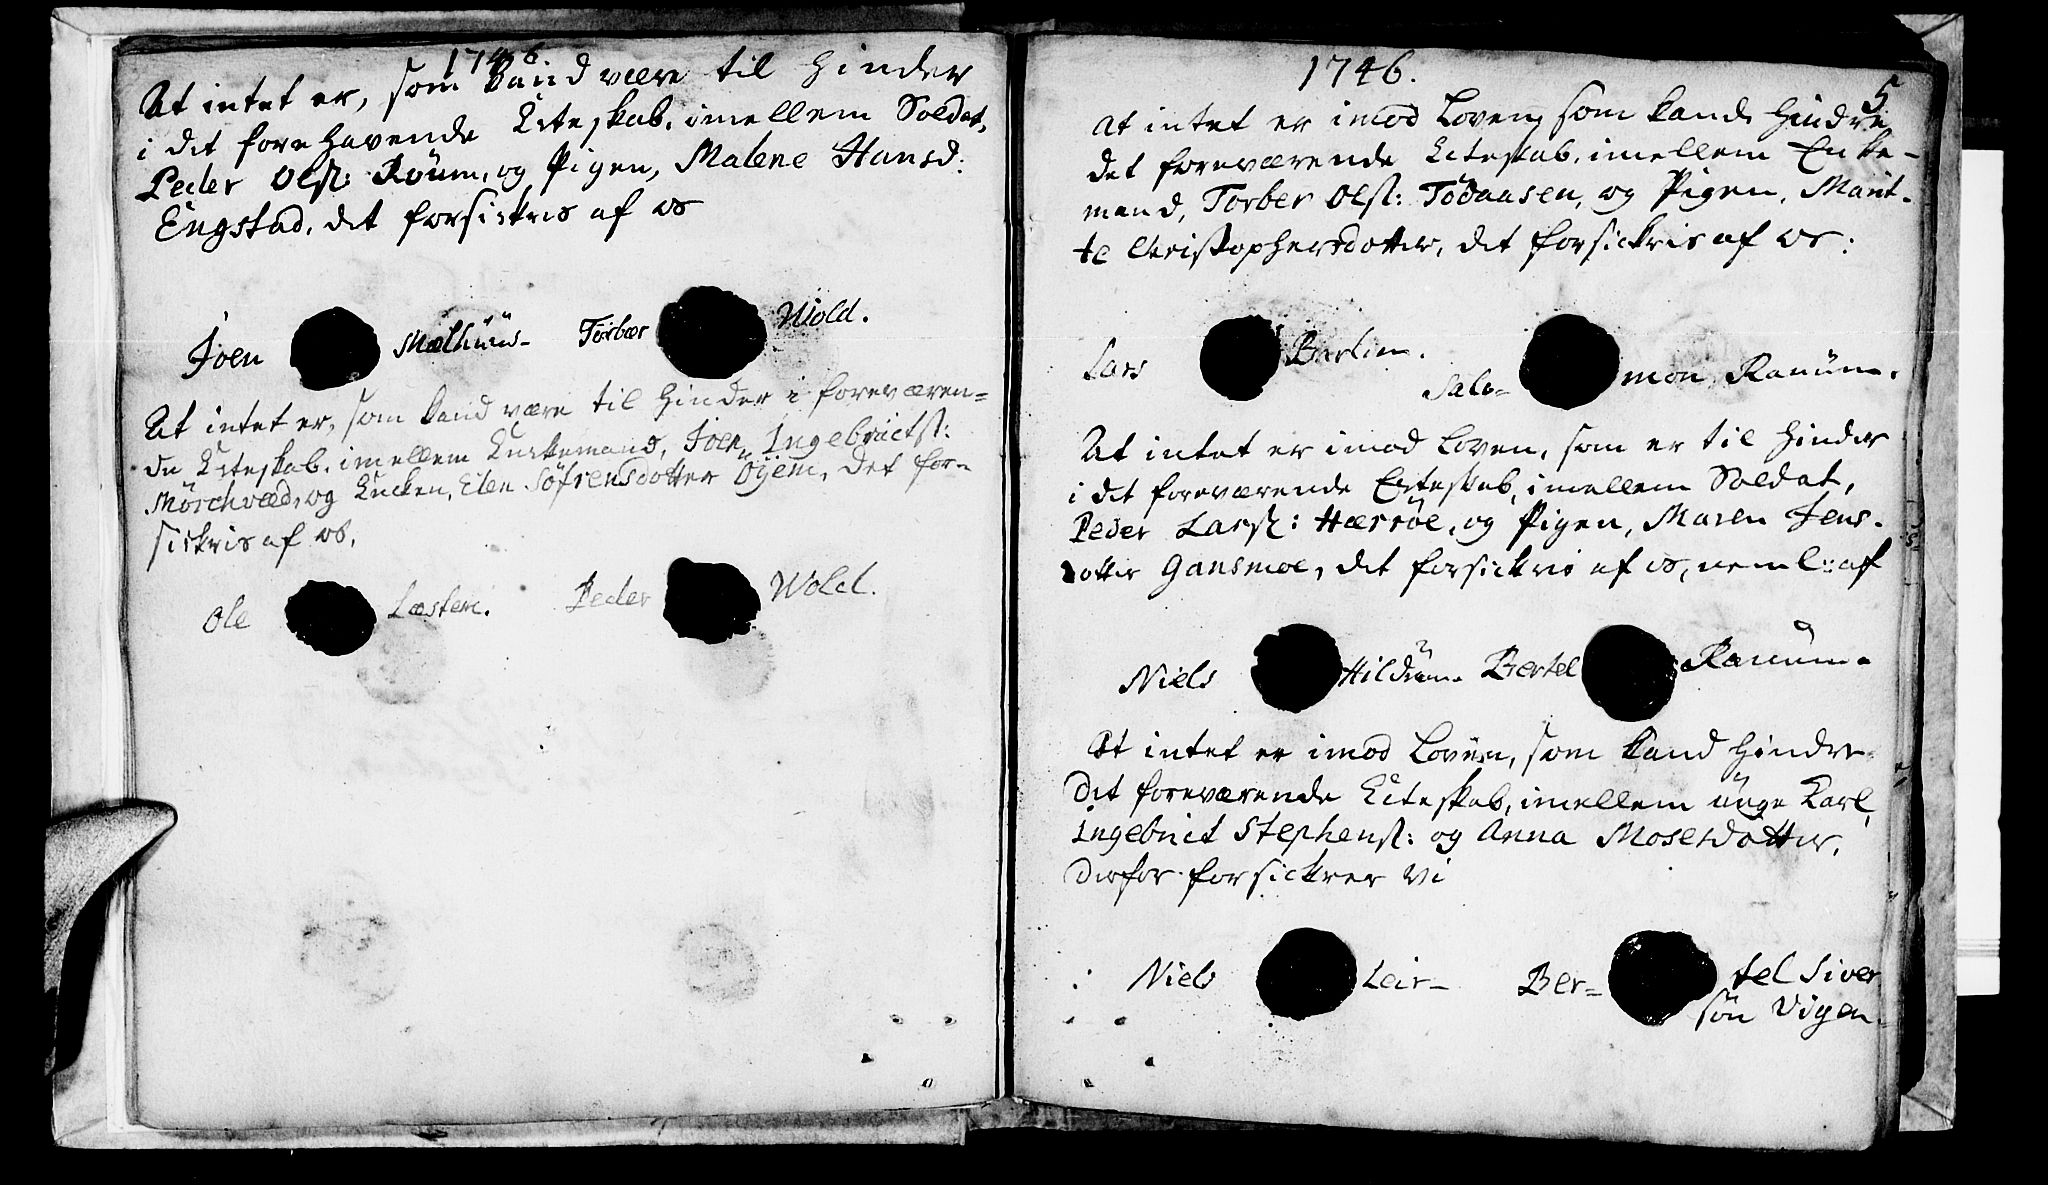 1746
At intet er, som kand være til Hinder
i det forehavende Ecteskab, imellem Soldat,
Peder Olß: Röum, og Pigen, Malene Hansd:
Engstad, det forsickris af os
Joen Mælhuus Torbær Wold.
At intet er, som kand være til Hinder i foreværen-
de Ecteskab, imellem Enckemand, Joen Ingebrictß:
Mörchved, og Encken, Elen Söfrensdotter Öyem, det for-
sickris af os,
Ole Læstem. Peder Wold.
1746.
5
At intet er imod Loven, som kande Hindre
det foreværende Ecteskab, imellem Encke-
mand, Torber Olß: Tödaasen, og Pigen, Marit-
te Christophersdotter, det forsickris af os:
Lars Barlien.
Salo- mon Ranum.
At intet er imod Loven, som er til Hinder
i det foreværende Ecteskab, imellem Soldat,
Peder Larsß: Hærröe, og Pigen, Maren Jens-
dotter Gansmoe, det forsickris af os, neml: af
Niels Hildrum. Bertel Ranum.
At intet er imod Loven, som kand Hindre
det foreværende Ecteskab, imellem unge Karl,
Ingebrict Stephensß: og Anna Mosesdotter,
derfor forsickrer vi
Niels Leir- Ber- tel Siver
sön Vigen.